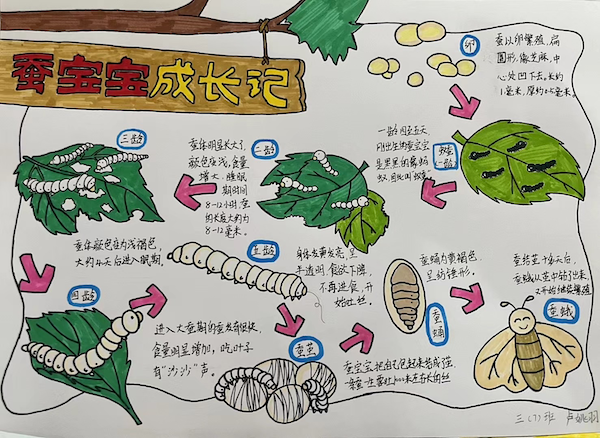 蚕宝宝成长记
卵
蚕以卵繁殖，扁
圆形，像芝麻，中
心处凹下去，长约
1毫米，厚约0.5毫米
蚁蚕
一龄
一龄四至五天
刚出生的蚕宝宝
是黑黑的
二龄
蚕体明显长大了
颜色变浅，食量
增大，睡眠
期时间
8-12小时，蚕
的长度大约为
8-12毫米。
三龄
蚕体颜色变为浅褐色，
大约4天后进入眠期。
四龄
进入大蚕期的蚕发育很快，
食量明显增加，吃叶子
有“沙沙”声。
五龄
身体发黄发亮，呈
半透明，食欲下降，
不再进食，开
始吐丝
蚕茧
蚕宝宝把自己包起来结成茧
蚕蛹
蚕蛹为黄褐色
呈纺锤形。
蚕结茧十多天后，
蚕蛾从茧中钻了出来，
又开始继续繁殖
蚕蛾
三（7）班 卢姚羽